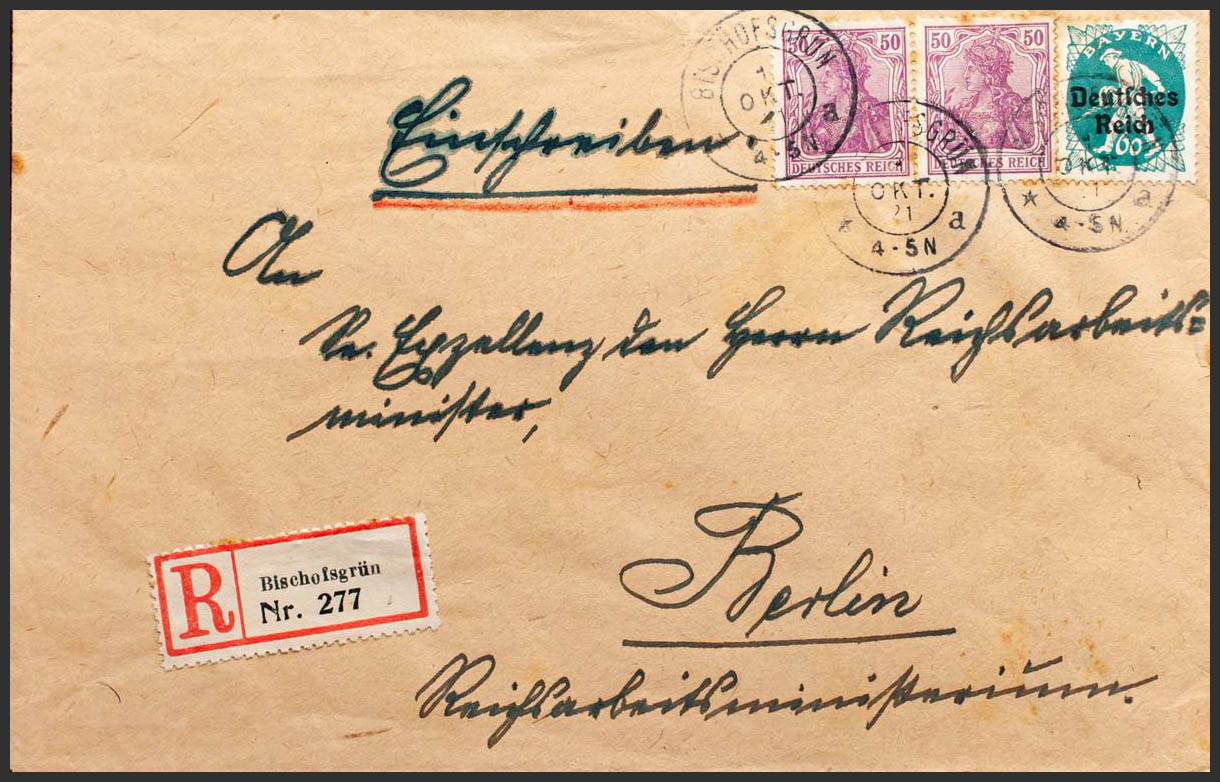 BISCHOFSGRÜN
1
OKT.
21
a
4-5N
50 50
DEUTSCHES REICH
50 50
DEUTSCHES REICH
BAYERN
Deutsches
Reich
60
OKT.
21
* a
4-5N
OKT.
* a
4-5N
Einschreiben.
An
Se. Exzellenz den Herrn Reichsarbeits=
minister,
R
Bischofsgrün
Nr. 277
Berlin
Reichsarbeitsministerium.